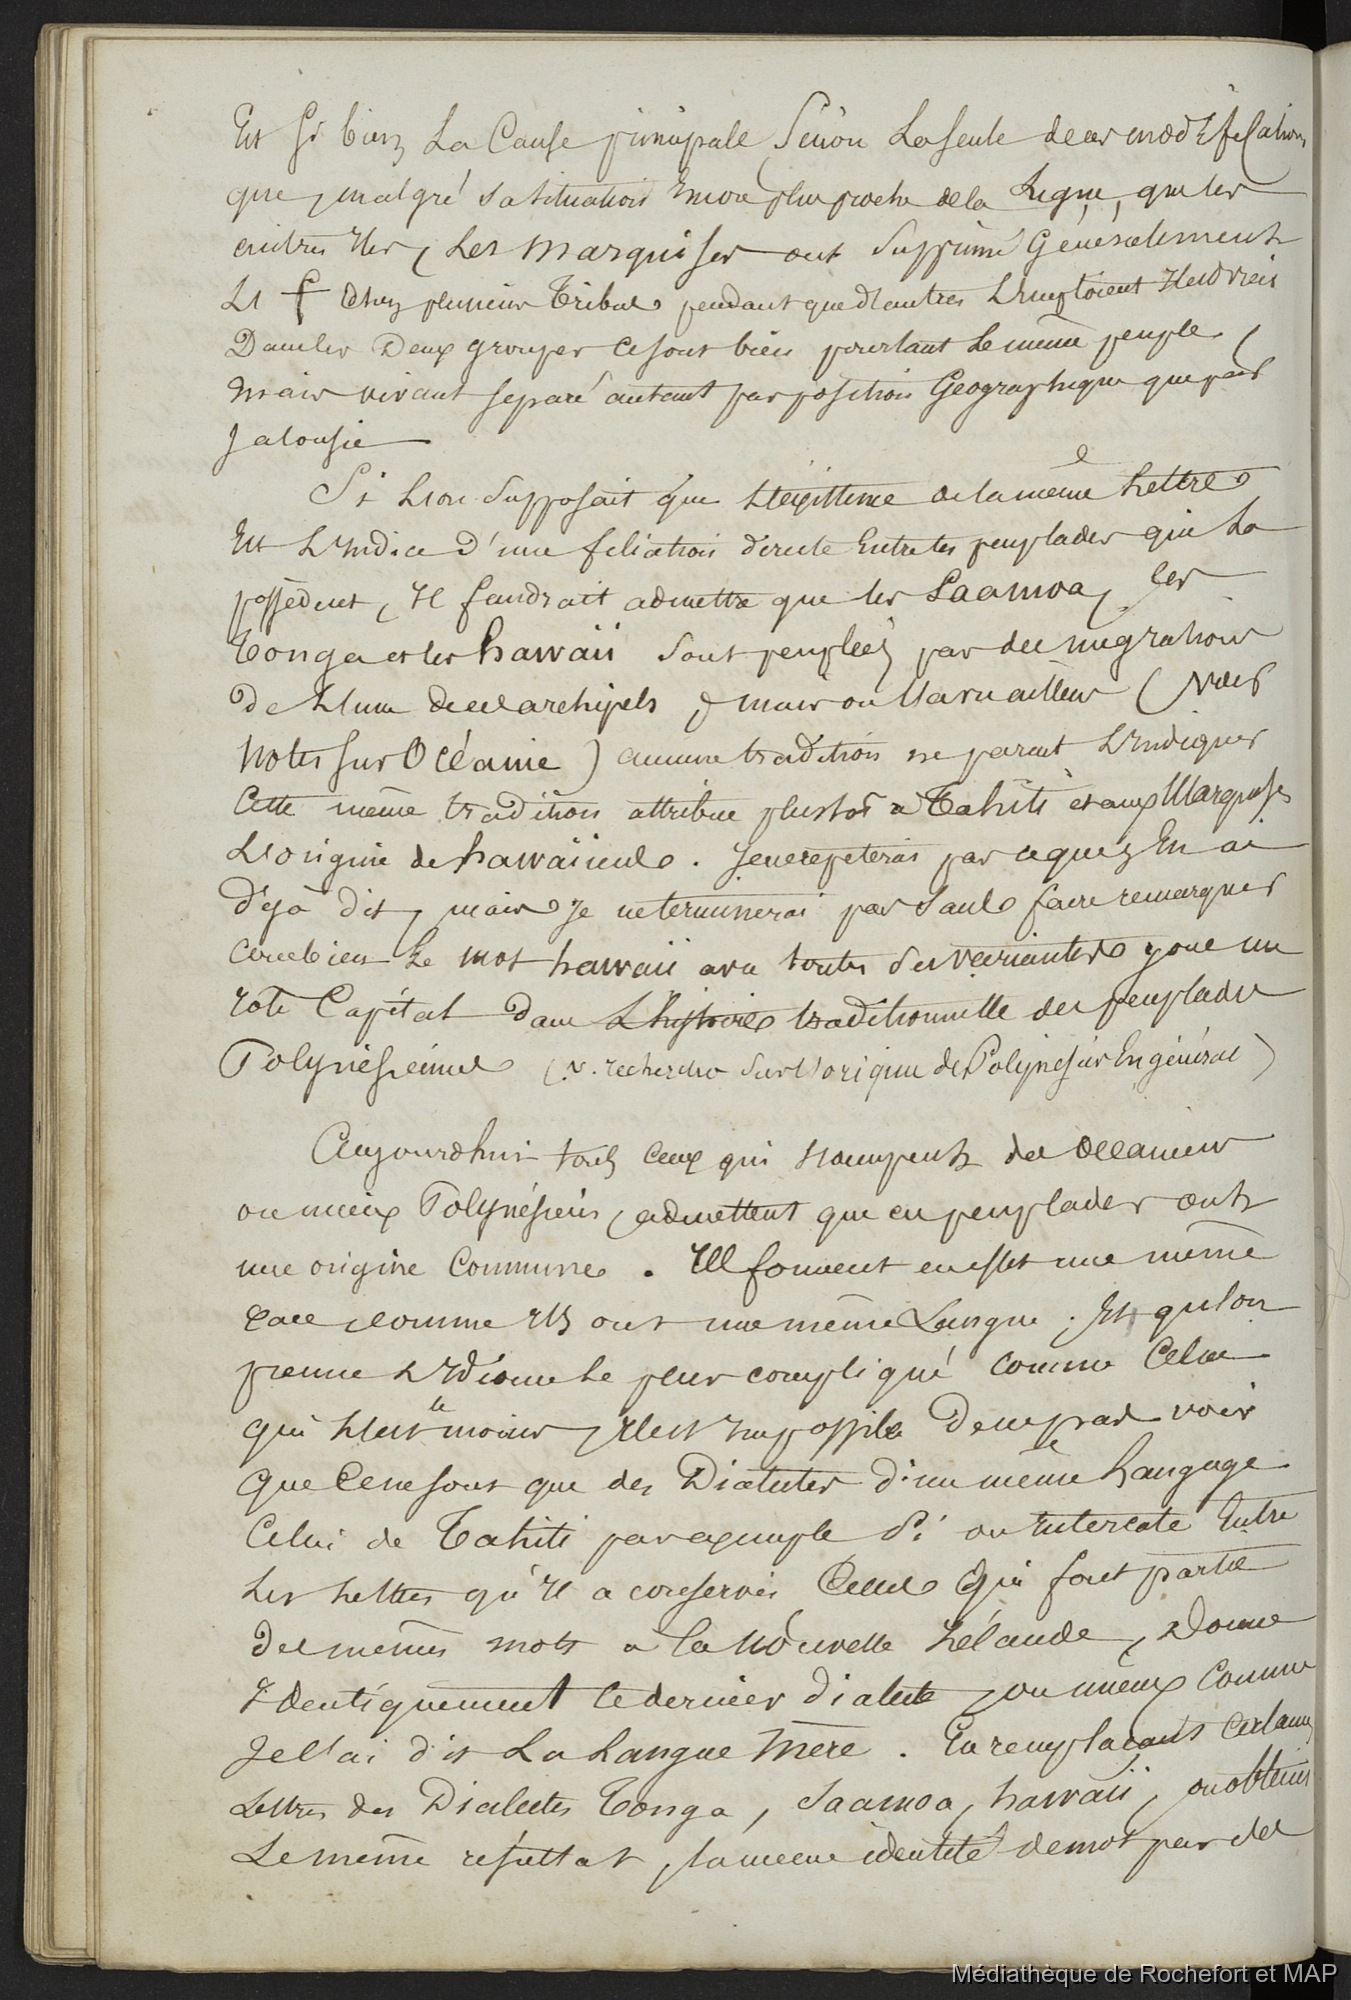 Est si bien La Cause principale Sinon La seule de ces modifications
que, malgré sa situation Encore plus proche de la Ligne, que les
autres Iles, Les Marquises ont Supprimé Généralement
Le f Chez plusieurs Tribus pendant que d'autres L'emploient
Dans les Deux groupes ce sont bien pourtant Le même peuple,
mais vivant separé autant par position Géographique que par
Jalousie
Si L'on Supposait que de la même Lettre
Est L'Indice d'une filiation directe Entre les peuplades qui La
possèdent, Il faudrait admettre que les Saamoa, les
Tonga et les hawaii Sont peuplées par des migrations
De L'une de ces archipels, mais on l'a vu ailleurs (Voir
Notes sur Océanie) aucune tradition ne parait L'Indiquer
Cette même tradition attribue plustot à Tahiti et aux Marquises
L'origine de hawaii. Je ne repeterai pas ce que j'En ai
déjà dit, mais Je ne terminerai pas Sans faire remarquer
combien Le mot hawaii avec toutes ses variantes joue un
role Capital dans L'histoire traditionnelle des peuplades
Polynésiennes (v. recherches Sur l'origine des Polynésiens En général)
Aujourd'hui tous ceux qui s'occupent des Océaniens
ou mieux Polynésiens, admettent que ces peuplades ont
une origine Commune. Ils forment en effet une même
race, comme Ils ont une même Langue. Et qu'l'on
prenne L'Idiome le plus compliqué comme Celui
qui L'est le moins, Il est Impossible De ne pas voir
que Ce ne sont que des Dialectes d'un même Langage
Celui de Tahiti par exemple Si on Intercale Entre
Les Lettres qu'Il a conservées Celles Qui font partie
Des mêmes mots a la Nouvelle Zélande, Donne
Identiquement ce dernier dialecte, ou mieux Comme
Je l'ai dit La Langue Mère. En remplaçant certaines
Lettres des Dialectes Tonga, Saamoa, hawaii, on obtient
Le même résultat, la meme identité de mot par des
Médiathèque de Rochefort et MAP